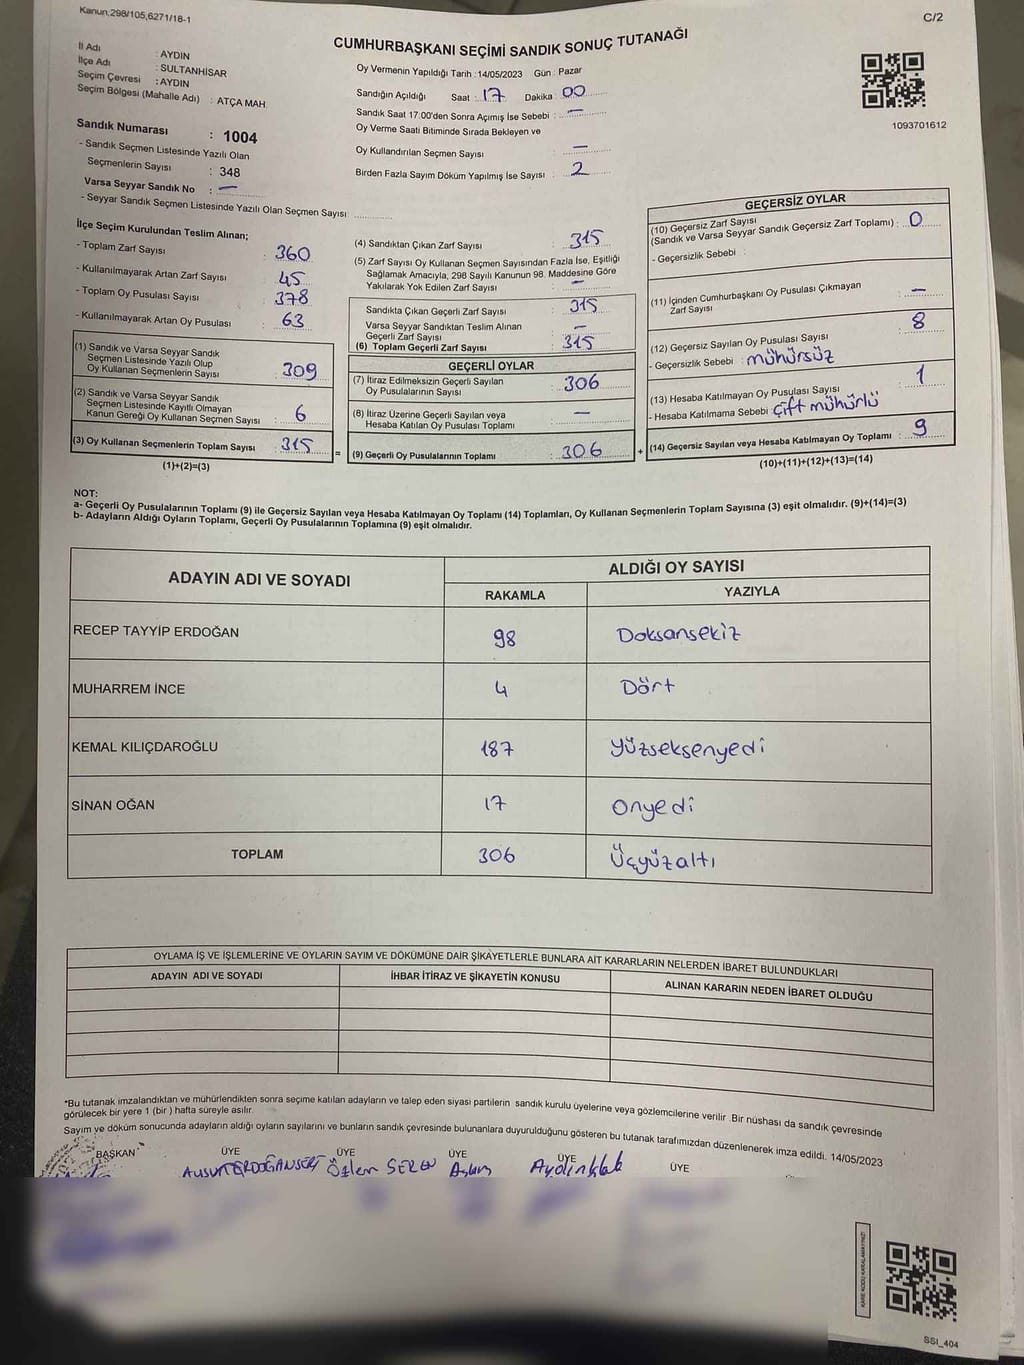 Kanun:298/105,6271/18-1
C/2
CUMHURBAŞKANI SEÇİMİ SANDIK SONUÇ TUTANAĞI
İl Adı : AYDIN
İlçe Adı : SULTANHİSAR
Seçim Çevresi : AYDIN
Seçim Bölgesi (Mahalle Adı) : ATÇA MAH.
Sandık Numarası : 1004
- Sandık Seçmen Listesinde Yazılı Olan
Seçmenlerin Sayısı : 348
Varsa Seyyar Sandık No : —
- Seyyar Sandık Seçmen Listesinde Yazılı Olan Seçmen Sayısı
Oy Vermenin Yapıldığı Tarih : 14/05/2023 Gün : Pazar
Sandığın Açıldığı Saat : 17 Dakika : 00
Sandık Saat 17:00'den Sonra Açımış İse Sebebi : —
Oy Verme Saati Bitiminde Sırada Bekleyen ve
Oy Kullandırılan Seçmen Sayısı : —
Birden Fazla Sayım Döküm Yapılmış İse Sayısı : 2
1093701612
İlçe Seçim Kurulundan Teslim Alınan;
- Toplam Zarf Sayısı : 360
- Kullanılmayarak Artan Zarf Sayısı : 45
- Toplam Oy Pusulası Sayısı : 378
- Kullanılmayarak Artan Oy Pusulası : 63
(1) Sandık ve Varsa Seyyar Sandık
Seçmen Listesinde Yazılı Olup
Oy Kullanan Seçmenlerin Sayısı : 309
(2) Sandık ve Varsa Seyyar Sandık
Seçmen Listesinde Kayıtlı Olmayan
Kanun Gereği Oy Kullanan Seçmen Sayısı : 6
(3) Oy Kullanan Seçmenlerin Toplam Sayısı : 315
(1)+(2)=(3)
(4) Sandıktan Çıkan Zarf Sayısı : 315
(5) Zarf Sayısı Oy Kullanan Seçmen Sayısından Fazla İse, Eşitliği
Sağlamak Amacıyla, 298 Sayılı Kanunun 98. Maddesine Göre
Yakılarak Yok Edilen Zarf Sayısı : —
Sandıkta Çıkan Geçerli Zarf Sayısı : 315
Varsa Seyyar Sandıktan Teslim Alınan
Geçerli Zarf Sayısı : —
(6) Toplam Geçerli Zarf Sayısı : 315
GEÇERLİ OYLAR
(7) İtiraz Edilmeksizin Geçerli Sayılan
Oy Pusulalarının Sayısı : 306
(8) İtiraz Üzerine Geçerli Sayılan veya
Hesaba Katılan Oy Pusulası Toplamı : —
= (9) Geçerli Oy Pusulalarının Toplamı : 306 +
GEÇERSİZ OYLAR
(10) Geçersiz Zarf Sayısı
(Sandık ve Varsa Seyyar Sandık Geçersiz Zarf Toplamı) : 0
- Geçersizlik Sebebi :
(11) İçinden Cumhurbaşkanı Oy Pusulası Çıkmayan
Zarf Sayısı : —
(12) Geçersiz Sayılan Oy Pusulası Sayısı : 8
- Geçersizlik Sebebi : mühürsüz
(13) Hesaba Katılmayan Oy Pusulası Sayısı : 1
- Hesaba Katılmama Sebebi : Çift mühürlü
(14) Geçersiz Sayılan veya Hesaba Katılmayan Oy Toplamı : 9
(10)+(11)+(12)+(13)=(14)
NOT:
a- Geçerli Oy Pusulalarının Toplamı (9) ile Geçersiz Sayılan veya Hesaba Katılmayan Oy Toplamı (14) Toplamları, Oy Kullanan Seçmenlerin Toplam Sayısına (3) eşit olmalıdır. (9)+(14)=(3)
b- Adayların Aldığı Oyların Toplamı, Geçerli Oy Pusulalarının Toplamına (9) eşit olmalıdır.
ADAYIN ADI VE SOYADI ALDIĞI OY SAYISI
RAKAMLA YAZIYLA
RECEP TAYYİP ERDOĞAN 98 Doksansekiz
MUHARREM İNCE 4 Dört
KEMAL KILIÇDAROĞLU 187 Yüzseksenyedi
SİNAN OĞAN 17 Onyedi
TOPLAM 306 Üçyüzaltı
OYLAMA İŞ VE İŞLEMLERİNE VE OYLARIN SAYIM VE DÖKÜMÜNE DAİR ŞİKÂYETLERLE BUNLARA AİT KARARLARIN NELERDEN İBARET BULUNDUKLARI
ADAYIN ADI VE SOYADI İHBAR İTİRAZ VE ŞİKAYETİN KONUSU ALINAN KARARIN NEDEN İBARET OLDUĞU
*Bu tutanak imzalandıktan ve mühürlendikten sonra seçime katılan adayların ve talep eden siyasi partilerin sandık kurulu üyelerine veya gözlemcilerine verilir. Bir nüshası da sandık çevresinde
görülecek bir yere 1 (bir ) hafta süreyle asılır.
Sayım ve döküm sonucunda adayların aldığı oyların sayılarını ve bunların sandık çevresinde bulunanlara duyurulduğunu gösteren bu tutanak tarafımızdan düzenlenerek imza edildi. 14/05/2023
BAŞKAN ÜYE ÜYE ÜYE ÜYE ÜYE
Özlem SEREN
KARE KODU KARALAMAYINIZ!
SSI_404